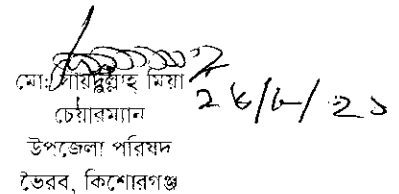 মো: সায়দুল্লাহ মিয়া
চেয়ারম্যান
উপজেলা পরিষদ
ভৈরব, কিশোরগঞ্জ